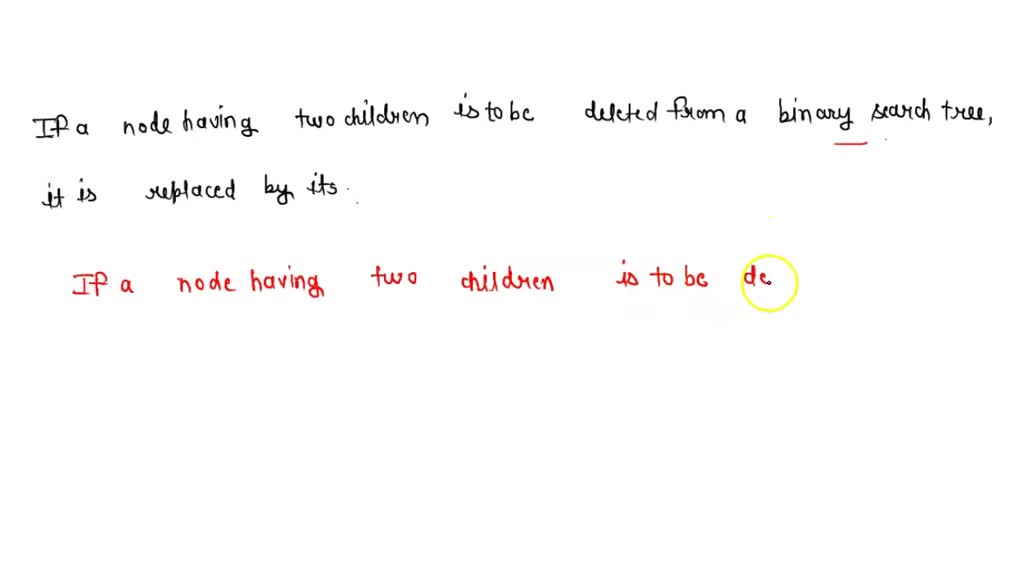 If a node having two children is to be deleted from a binary search tree,
it is replaced by its.
If a node having two children is to be de